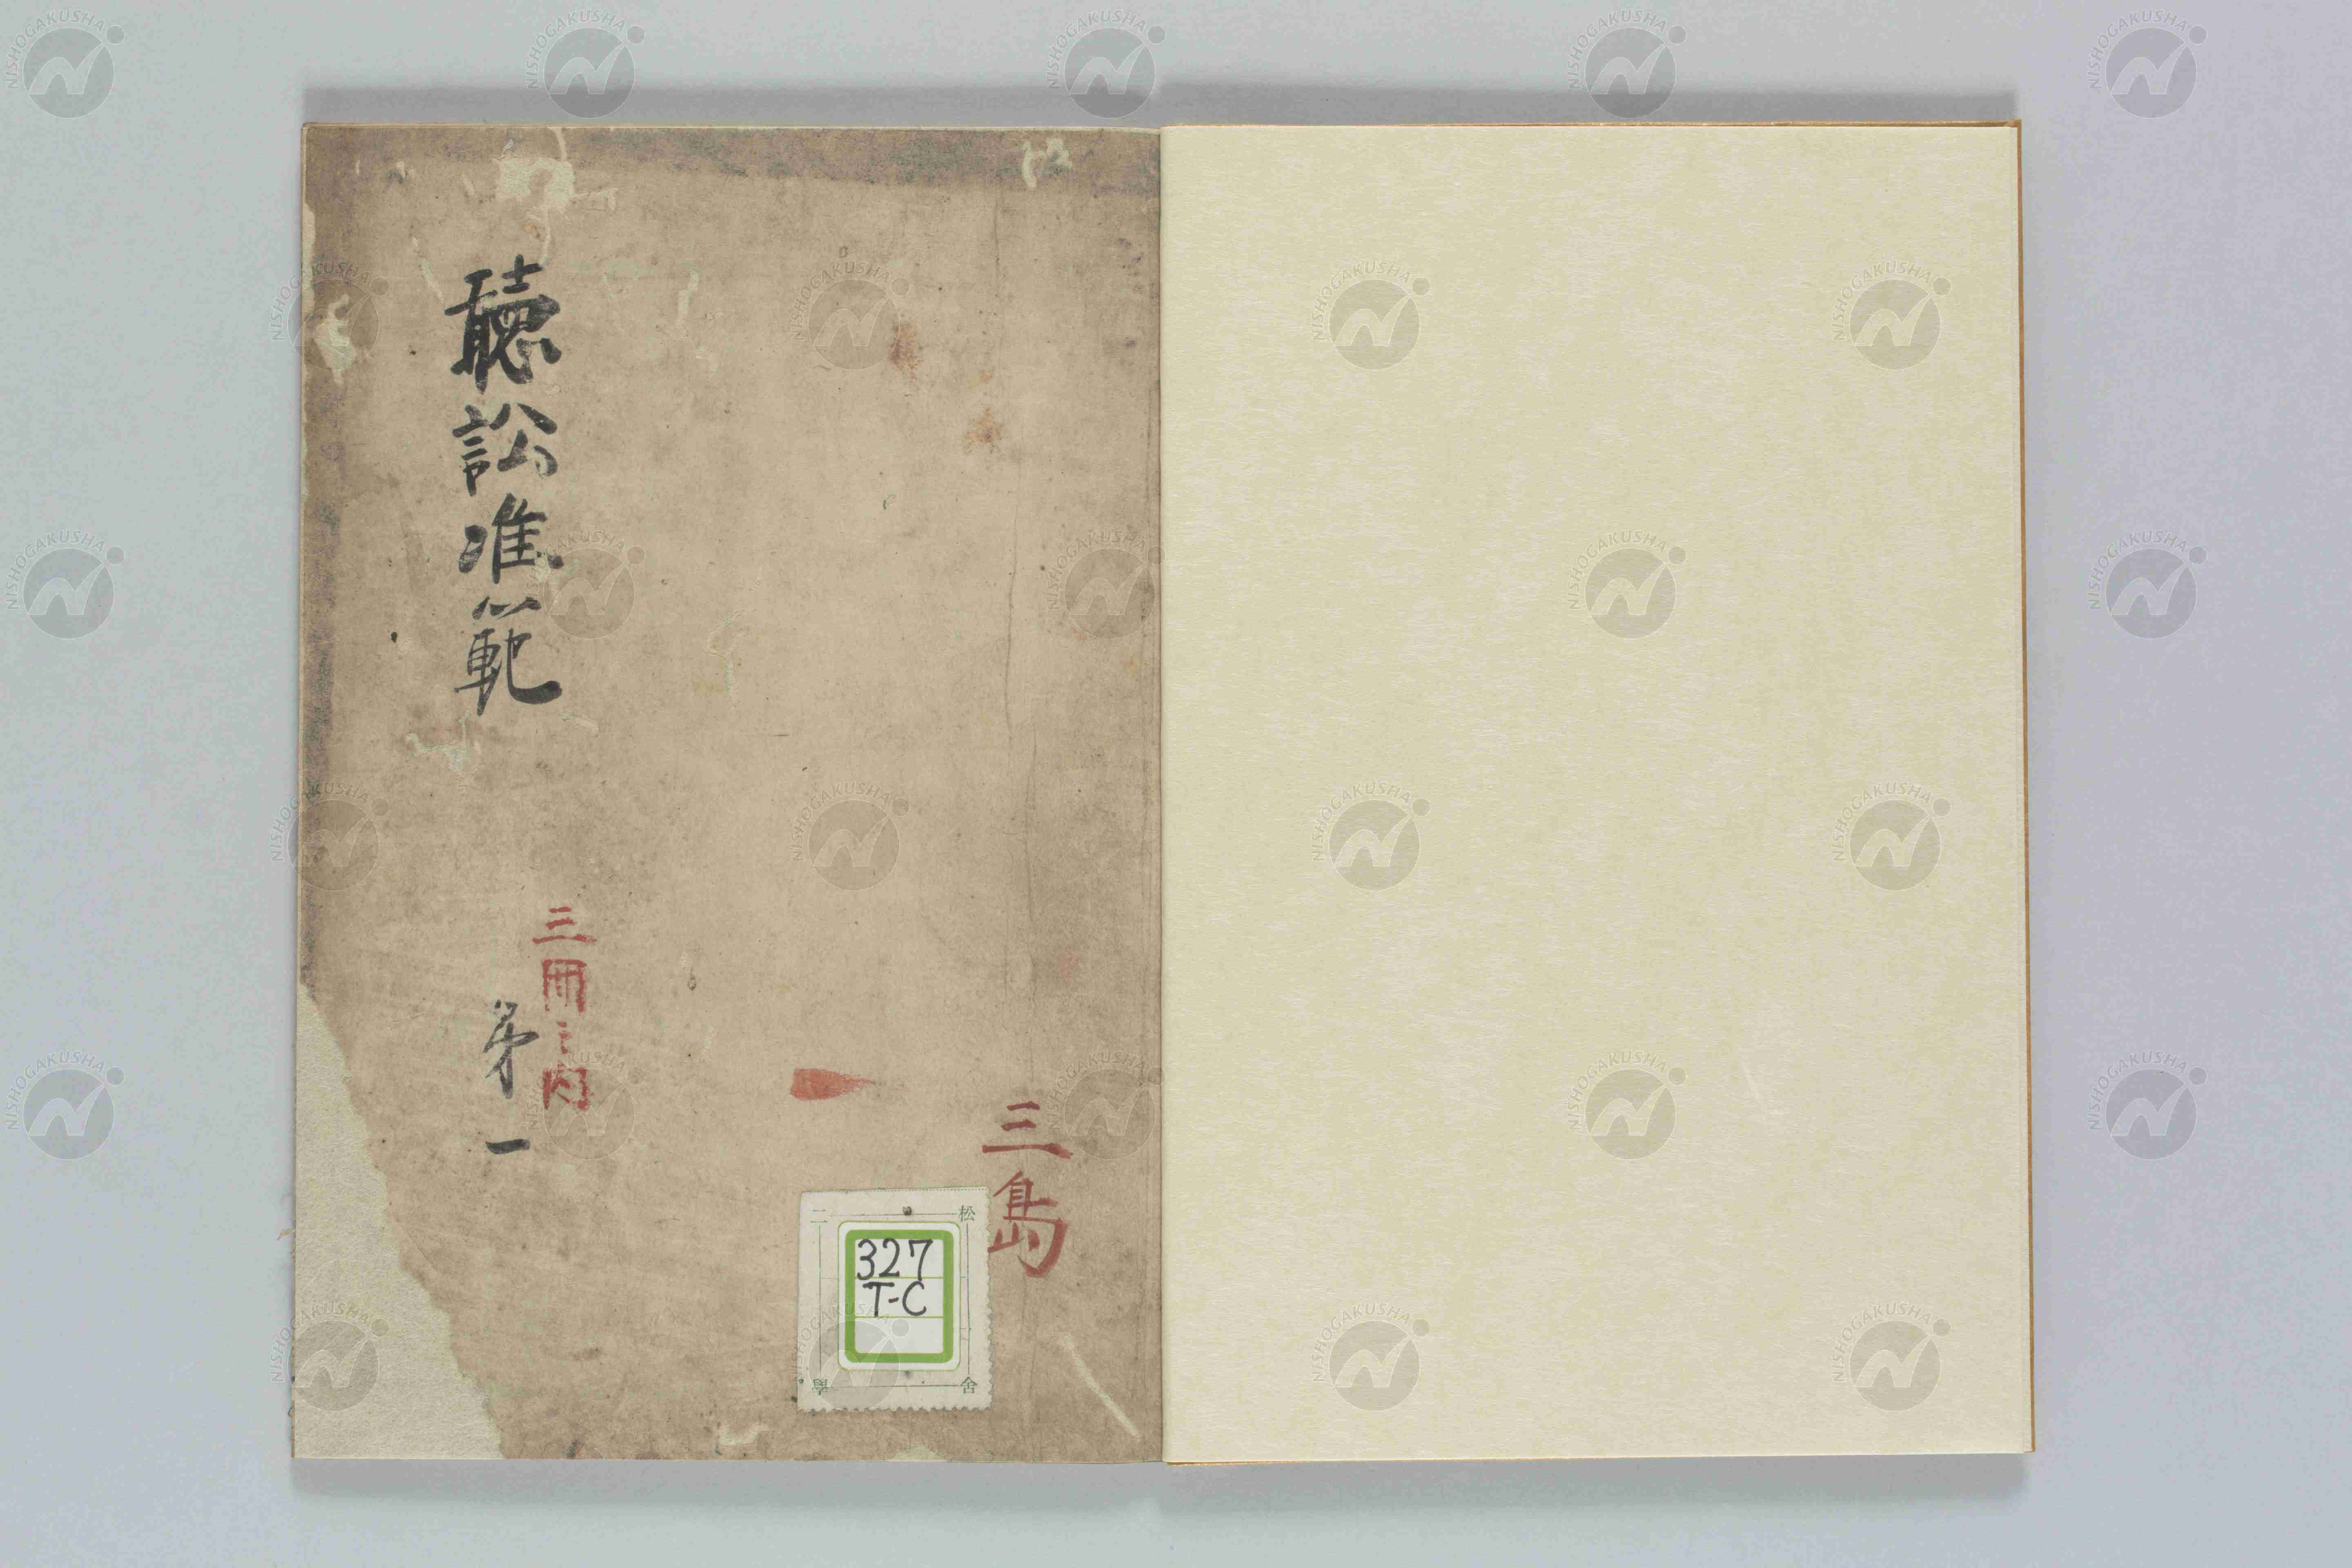 三島
三冊之内
聽訟準範
第一
二松
學舍
327
T-C
NISHOGAKUSHA